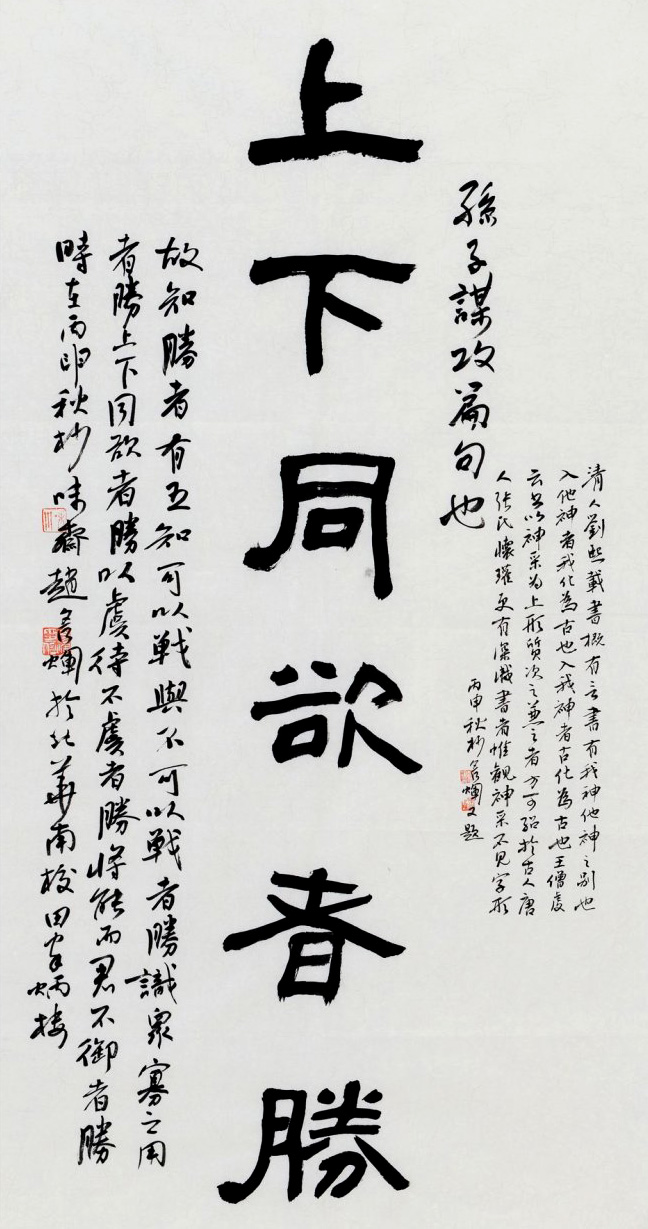 上下同欲者勝
孫子謀攻篇句也
清人劉熙載書概有言書有我神他神之别也
入他神者我化為古也入我神者古化為古也王僧虔
云書以神采為上形質次之兼之者方可紹於古人唐
人張氏懷瓘更有深識書者惟觀神采不見字形
丙申秋杪 輝又題
故知勝者有五知可以戰與不可以戰者勝識衆寡之用
者勝上下同欲者勝以虞待不虞者勝將能而君不御者勝
時在丙申秋杪味齋趙 輝於北華南校